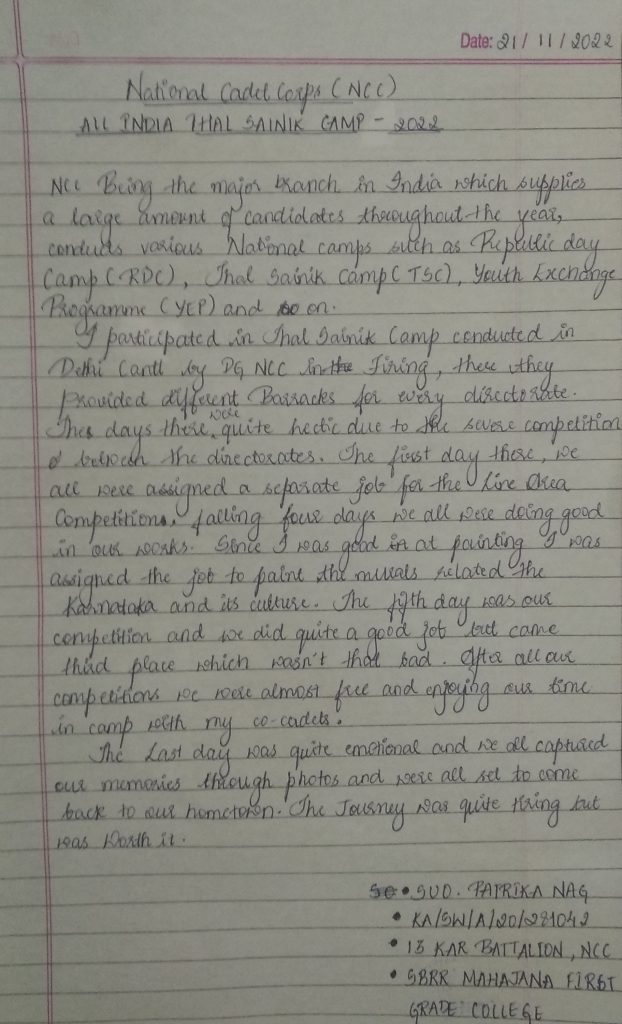 Date: 21/11/2022
National Cadet Corps (NCC)
ALL INDIA THAL SAINIK CAMP - 2022
NCC Being the major branch in India which supplies
a large amount of candidates throughout the year,
conducts various National camps such as Republic day
Camp (RDC), Thal Sainik Camp (TSC), Youth Exchange
Programme (YEP) and so on.
I participated in Thal Sainik Camp conducted in
Delhi Cantt by DG NCC in the Firing, there they
Provided different Barracks for every directorate.
Thes days there were quite hectic due to the severe competition
between the directorates. The first day there, we
all were assigned a separate job for the Line Area
Competitions, falling four days we all were doing good
in our works. Since I was good in at painting I was
assigned the job to paint the murals related the
Karnataka and its culture. The fifth day was our
competition and we did quite a good job but came
third place which wasn't that bad. After all our
competitions we were almost free and enjoying our time
in camp with my co-cadets.
The Last day was quite emotional and we all captured
our memories through photos and were all set to come
back to our hometown. The Journey was quite tiring but
was Worth it.
• SUO. PAPRIKA NAG
• KA/SW/A/20/281042
• 13 KAR BATTALION, NCC
• SBRR MAHAJANA FIRST
GRADE COLLEGE